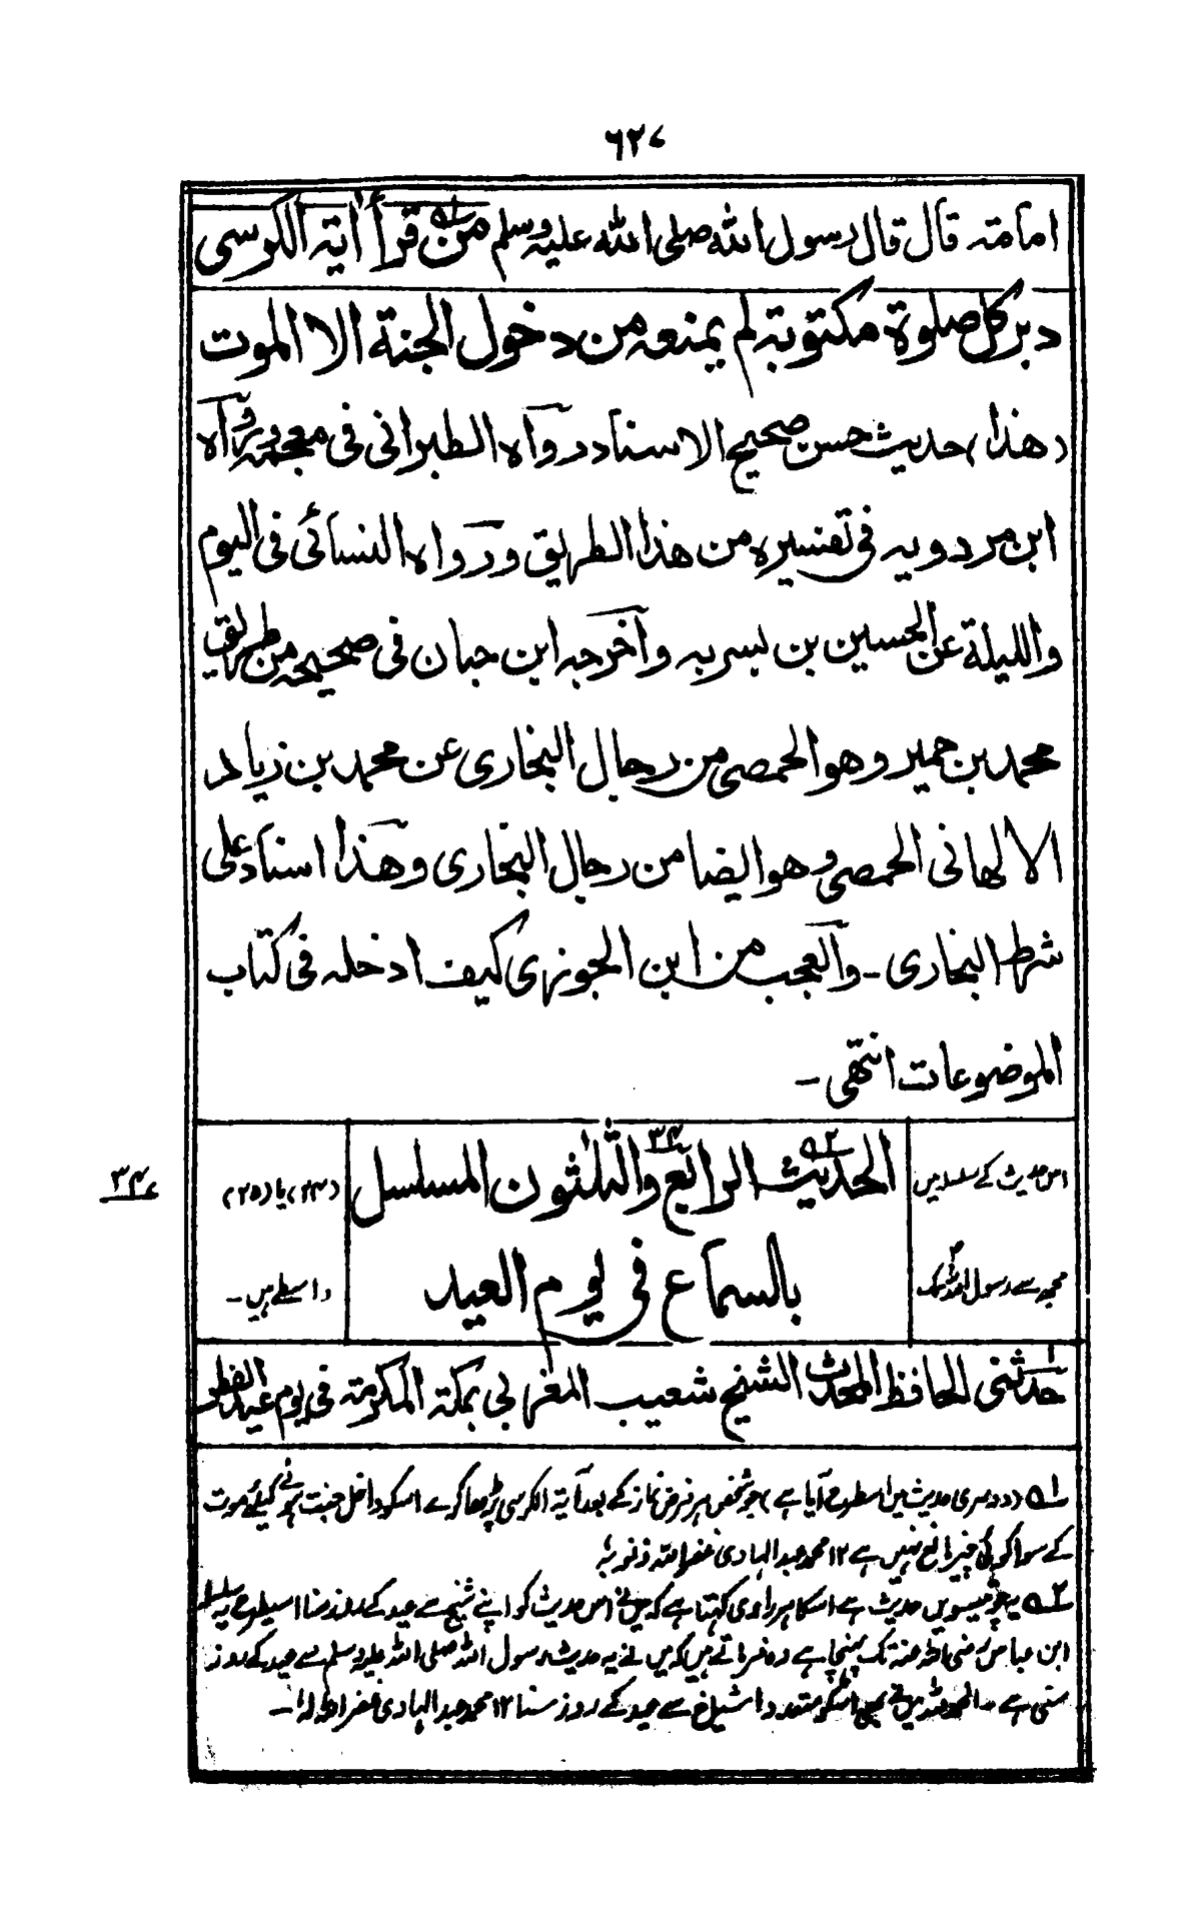 ٦٢٧
امامة قال قال رسول الله صلى الله عليه وسلم من قرأ اٰية الكرسى
دبر كل صلوة مكتوبة لم يمنعه من دخول الجنة الا الموت
(هذا) حديث حسن صحيح الاسناد رواه الطبرانى فى معجمه ورواه
ابن مردويه فى تفسيره من هذا الطريق ورواه النسائى فى اليوم
والليلة عن الحسين بن بسر به وأخرجه ابن حبان فى صحيحه من طريق
محمد بن حمير وهو الحمصى من رجال البخارى عن محمد بن زياد
الالهانى الحمصى وهو ايضا من رجال البخارى وهذا اسناد على
شرط البخارى - والعجب من ابن الجوزى كيف ادخله فى كتاب
الموضوعات انتهى -
اس حدیث کے سلسلہ میں
الحديث الرابع والثلٰثون المسلسل
٣٤
(٢٣) یا (٢٥)
مجھ سے رسول اللہ تک
بالسماع فى يوم العيد
واسطے ہیں -
حدثنى الحافظ المحدث الشيخ شعيب المغربى بمكة المكرمة فى يوم عيد الفطر
١ه (دوسری حدیث میں اسطرح آیا ہے) جو شخص ہر فرض نماز کے بعد آیۃ الکرسی پڑھا کرے اسکو داخل جنت ہونے کیلئے موت
کے سوا کوئی چیز مانع نہیں ہے ١٢ محمد عبد الہادی غفر اللہ ذنوبہ
٢ه یہ چونتیسویں حدیث ہے اسکا ہر راوی کہتا ہے کہ میں نے اس حدیث کو اپنے شیخ سے عید کے روز سنا اسیطرح یہ سلسلہ
ابن عباس رضی اللہ عنہ تک پہنچا ہے وہ فرماتے ہیں کہ میں نے یہ حدیث رسول اللہ صلی اللہ علیہ وسلم سے عید کے روز
سنی ہے - الحمد للہ میں نے بھی اسکو متعدد اشیاخ سے عید کے روز سنا ١٢ محمد عبد الہادی غفر اللہ لہ -